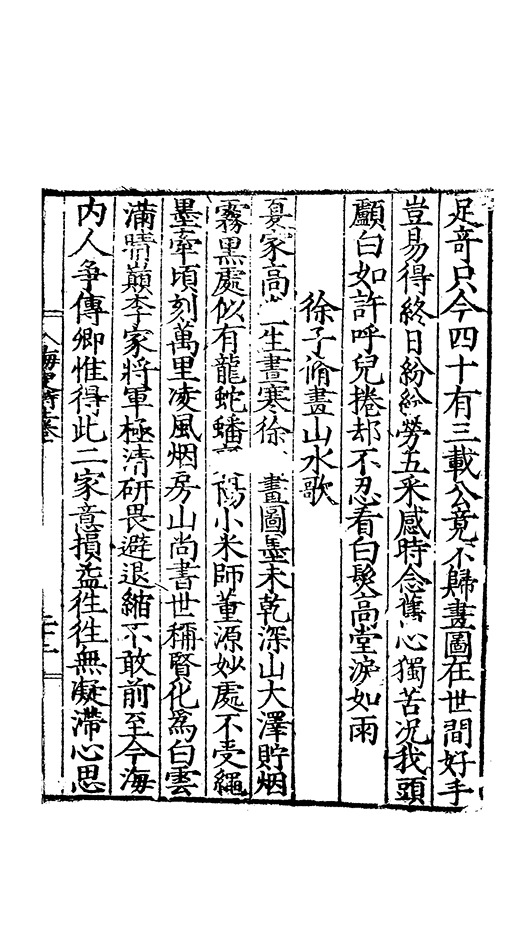 足奇只今四十有三載公竟不歸畫圖在世間好手
豈易得終日紛紛勞五采感時念舊心獨苦况我頭
顱白如許呼兒捲却不忍看白髮高堂淚如雨
徐子脩畫山水歌
夏家高 生畫寒徐 畫圖墨未乾深山大澤貯烟
霧黑處似有龍蛇蟠 陽小米師董源妙處不受繩
墨牽頃刻萬里凌風烟房山尚書世稱賢化爲白雲
滿晴巔李家將軍極清研畏避退縮不敢前至今海
内人争傳卿惟得此二家意損益往往無凝滯心思